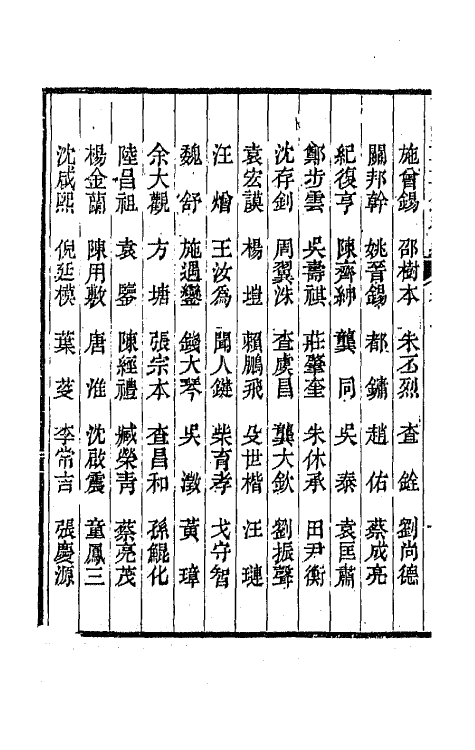 施曾錫 邵樹本 朱丕烈 查銓 劉尚德
關邦幹 姚晉錫 都鏞 趙佑 蔡成亮
紀復亨 陳齊紳 龔同 吳泰 袁匡肅
鄭步雲 吳壽祺 莊肇奎 朱休承 田尹衡
沈存釗 周翼洙 查虞昌 龔大欽 劉振聲
袁宏謨 楊塏 賴鵬飛 殳世楷 汪璉
汪燴 王汝為 聞人鍵 柴育孝 戈守智
魏舒 施遇鑾 錢大琴 吳澂 黃璋
余大觀 方塘 張宗本 查昌和 孫鯤化
陸昌祖 袁鑒 陳經禮 臧榮青 蔡亮茂
楊金蘭 陳用敷 唐淮 沈啟震 童鳳三
沈咸熙 倪廷模 葉蔆 李常吉 張慶源